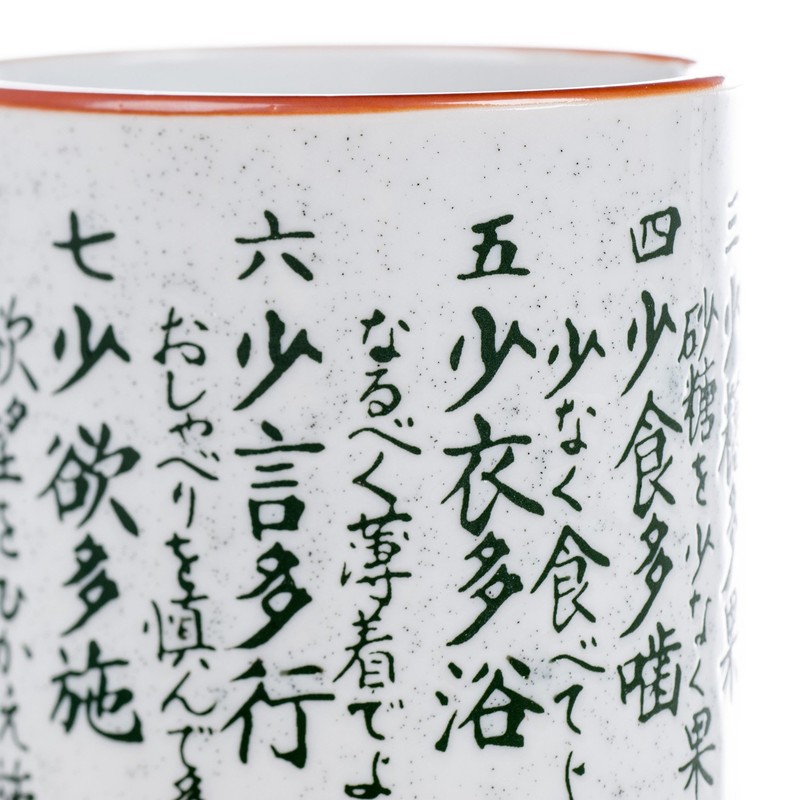 三
砂糖を少なく果
四 少食多噛
少なく食べてじ
五 少衣多浴
なるべく薄着でよ
六 少言多行
おしゃべりを慎んで
七 少欲多施
欲望をひかえ